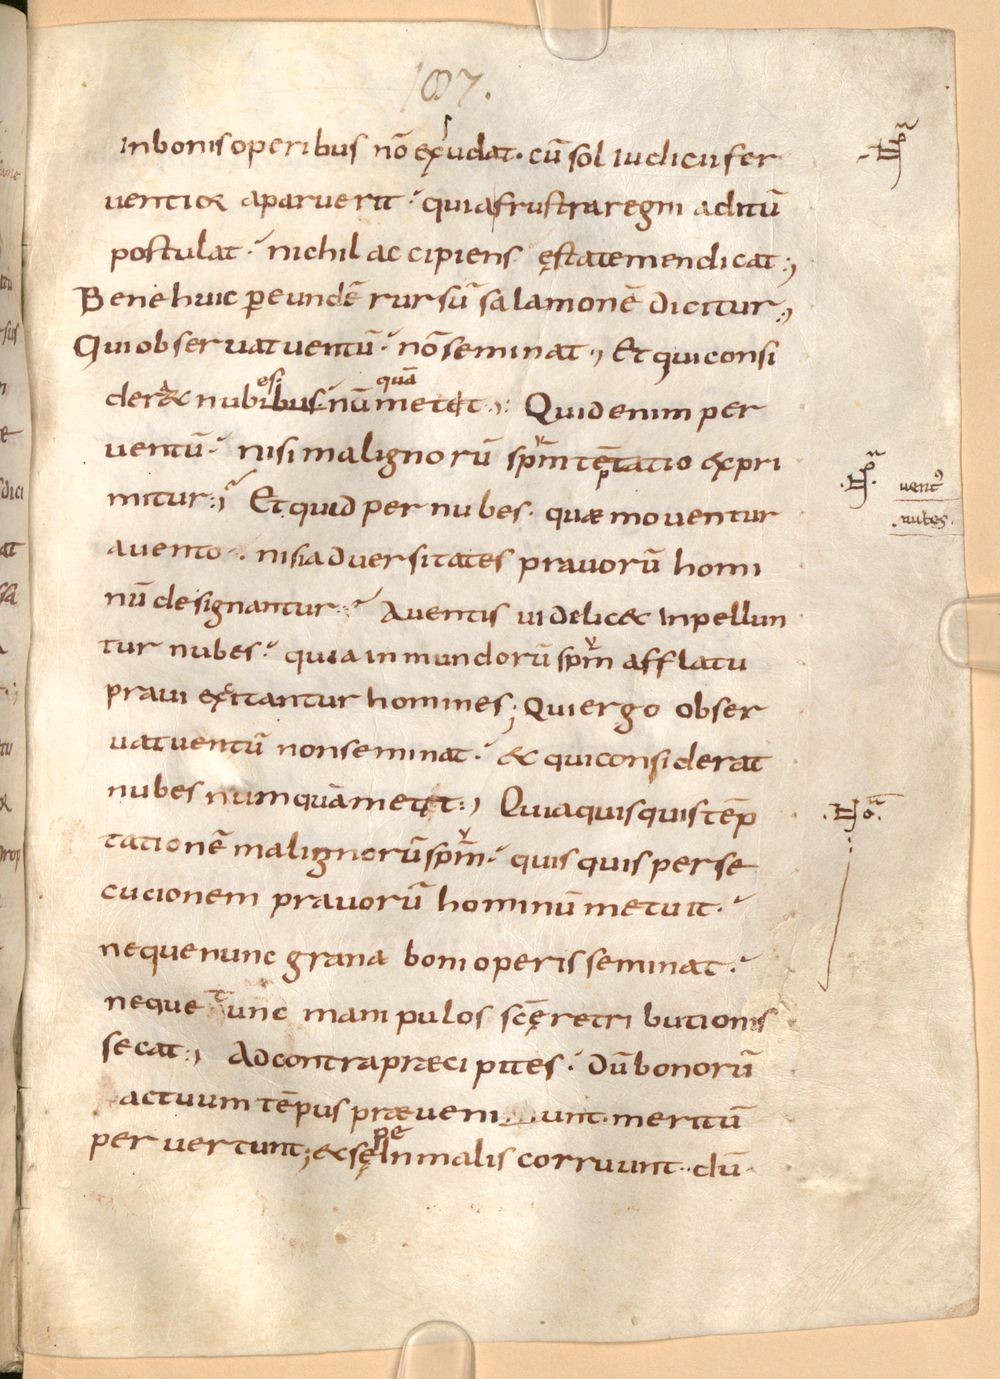 107.
in bonis operibus nõ exudat. cũ sol iudicii fer
ventior aparverit. quia frustra regni aditũ
postulat. nichil accipiens ęstate mendicat;
Bene huic per eundẽ rursũ salamonẽ dicitur;
Qui observat ventũ. nõ seminat; Et qui consi
derat nubes numquã metet; Quid enim per
ventũ. nisi malignorũ spm̃ tẽptatio expri
mitur; Et quid per nubes. quæ moventur
a vento. nisi adversitates pravorũ homi
nũ designantur; A ventis videlic& inpellun
tur nubes. quia inmundorũ spm̃ afflatu
pravi excitantur homines; Qui ergo obser
vat ventũ non seminat. & qui considerat
nubes numquã metet; Quia quisquis tẽp
tationẽ malignorũ spm̃. quisquis perse
cucionem pravorũ hominũ metuit.
neque nunc grana boni operis seminat.
neque tunc manipulos scẽ retributionis
secat; Ad contra præcipites. dũ bonorũ
actuum tẽpus præveniunt. meritũ
pervertunt; & sępe in malis corruunt. dũ
vent9
nubes.